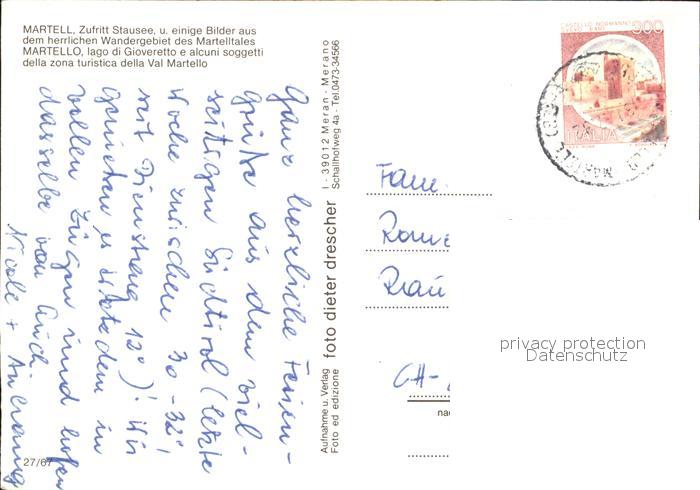 MARTELL, Zufritt Stausee, u. einige Bilder aus
dem herrlichen Wandergebiet des Martelltales
MARTELLO, lago di Gioveretto e alcuni soggetti
della zona turistica della Val Martello
Ganz herzliche Ferien-
grüsse aus dem viel-
seitigen Südtirol (letzte
Woche zwischen 30-32°,
seit Dienstag 12°)! Wir
geniessen es trotzdem in
vollen Zügen und hoffen
dasselbe von Euch.
Nicole +
27/67
Aufnahme u. Verlag
Foto ed edizione
foto dieter drescher
I - 39012 Meran - Merano
Schallhofweg 4a - Tel. 0473-34566
CASTELLO NORMANNO
SVEVO BARI
300
ITALIA
Fam.
CH-
privacy protection
Datenschutz